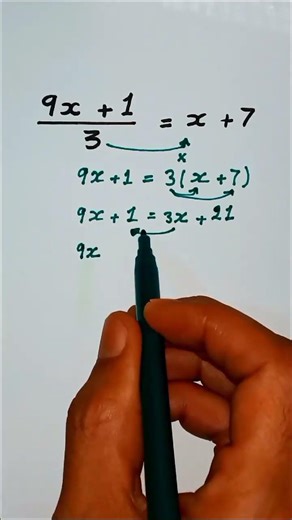 9x + 1
3
= x + 7
x
9x + 1 = 3(x + 7)
9x + 1 = 3x + 21
9x